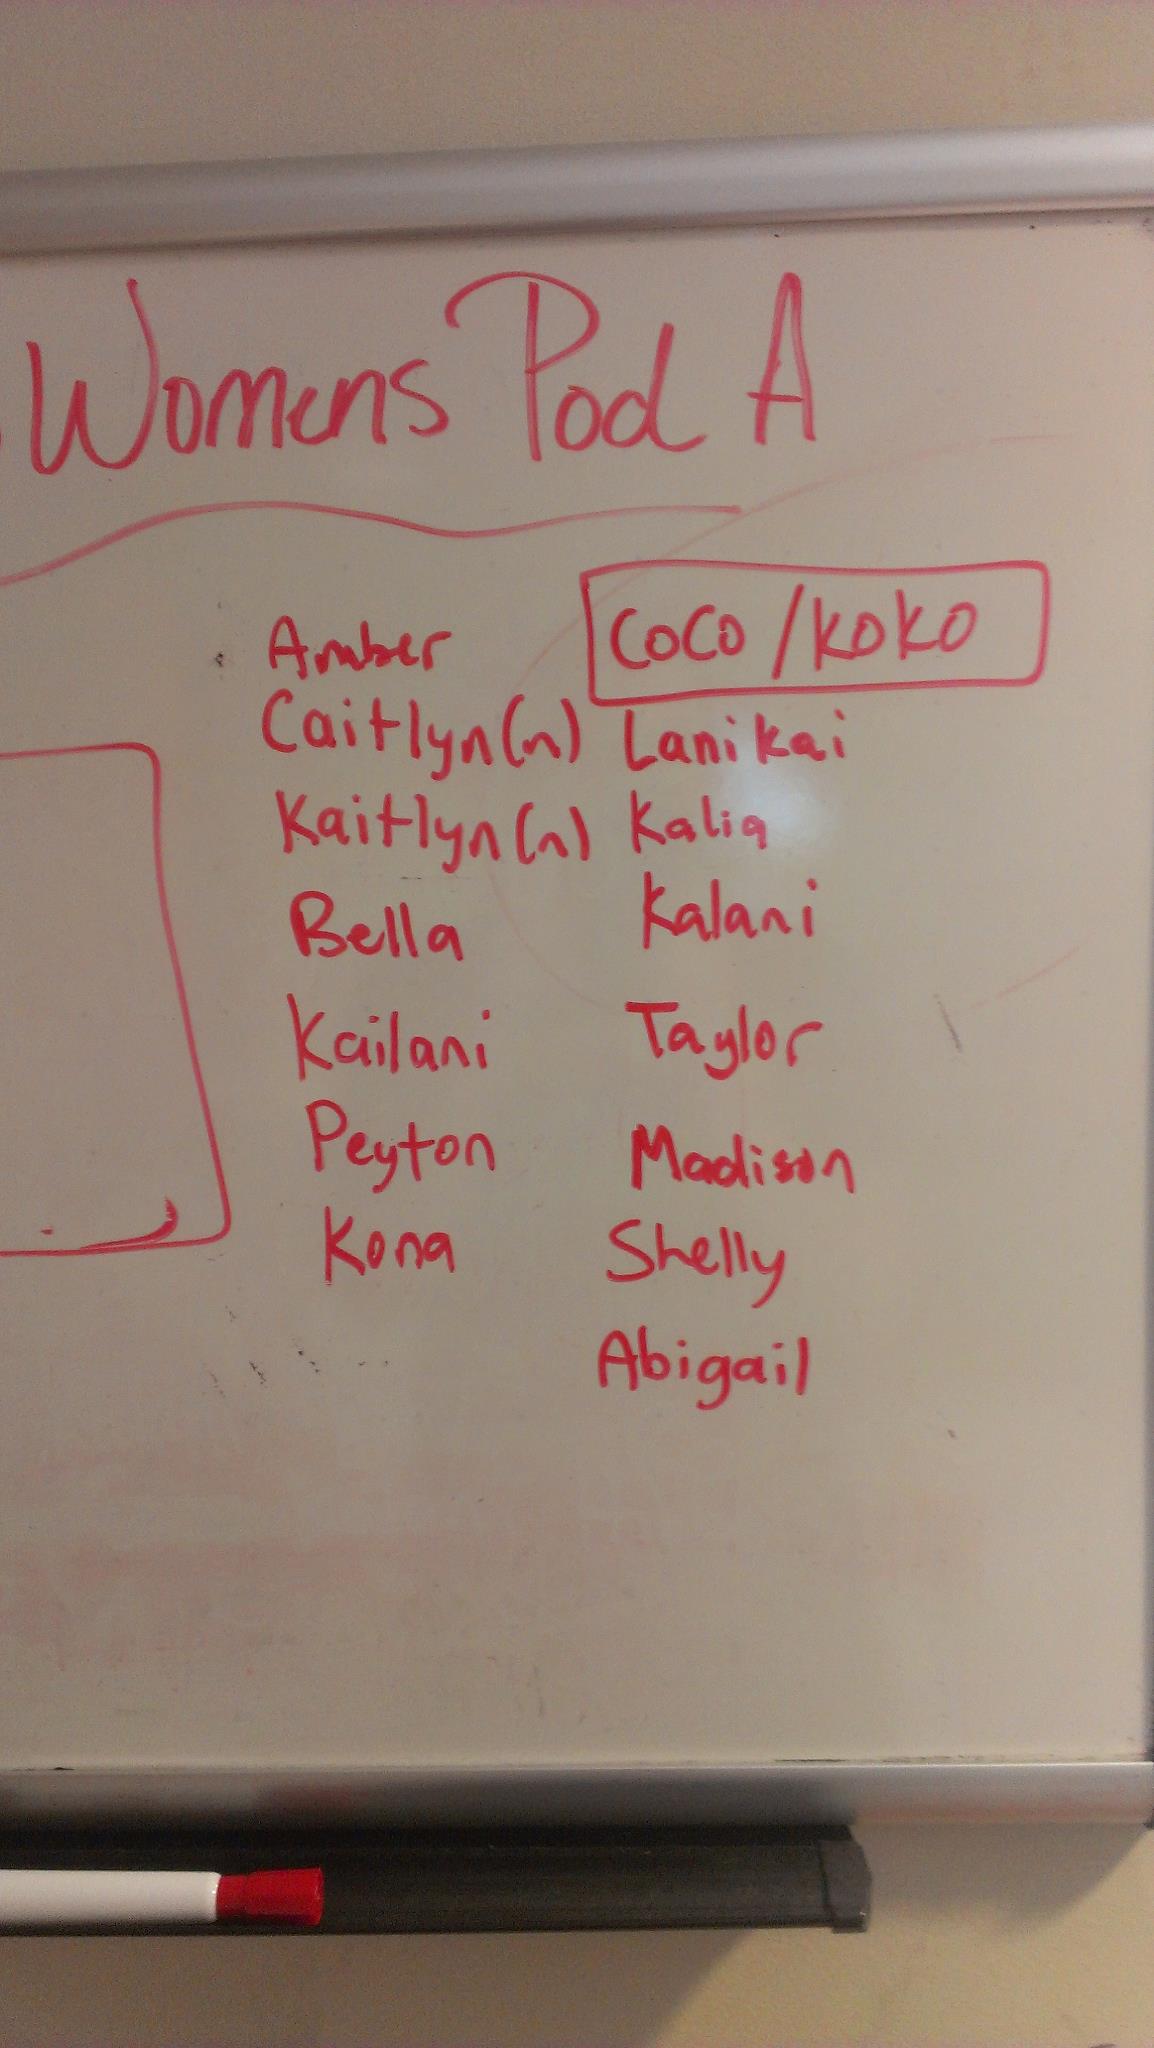 Womens Pod A
Amber
Caitlyn(n)
Kaitlyn(n)
Bella
Kailani
Peyton
Kona
COCO/KOKO
Lanikai
Kalia
Kalani
Taylor
Madison
Shelly
Abigail